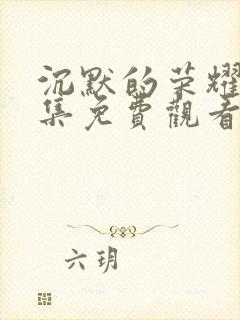 沉默的荣耀
集免費觀看
六玥